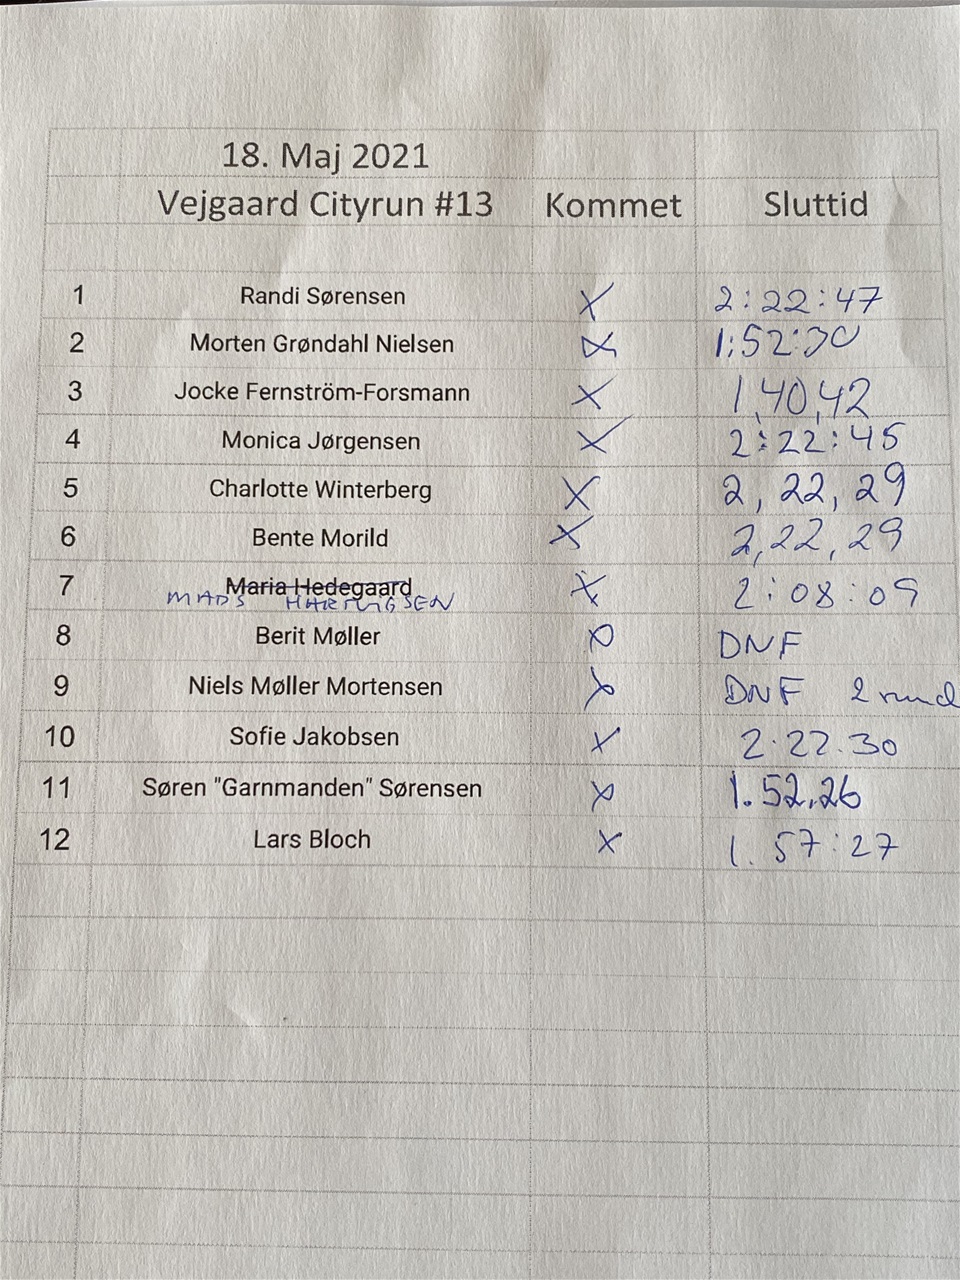 18. Maj 2021
Vejgaard Cityrun #13 Kommet Sluttid
1 Randi Sørensen X 2:22:47
2 Morten Grøndahl Nielsen X 1:52:30
3 Jocke Fernström-Forsmann X 1,40,42
4 Monica Jørgensen X 2:22:45
5 Charlotte Winterberg X 2, 22, 29
6 Bente Morild X 2,22, 29
7 Maria Hedegaard X 2:08:09
MADS HARTVIGSEN
8 Berit Møller X DNF
9 Niels Møller Mortensen X DNF 2 rund
10 Sofie Jakobsen X 2.22.30
11 Søren "Garnmanden" Sørensen X 1.52,26
12 Lars Bloch X 1.57:27